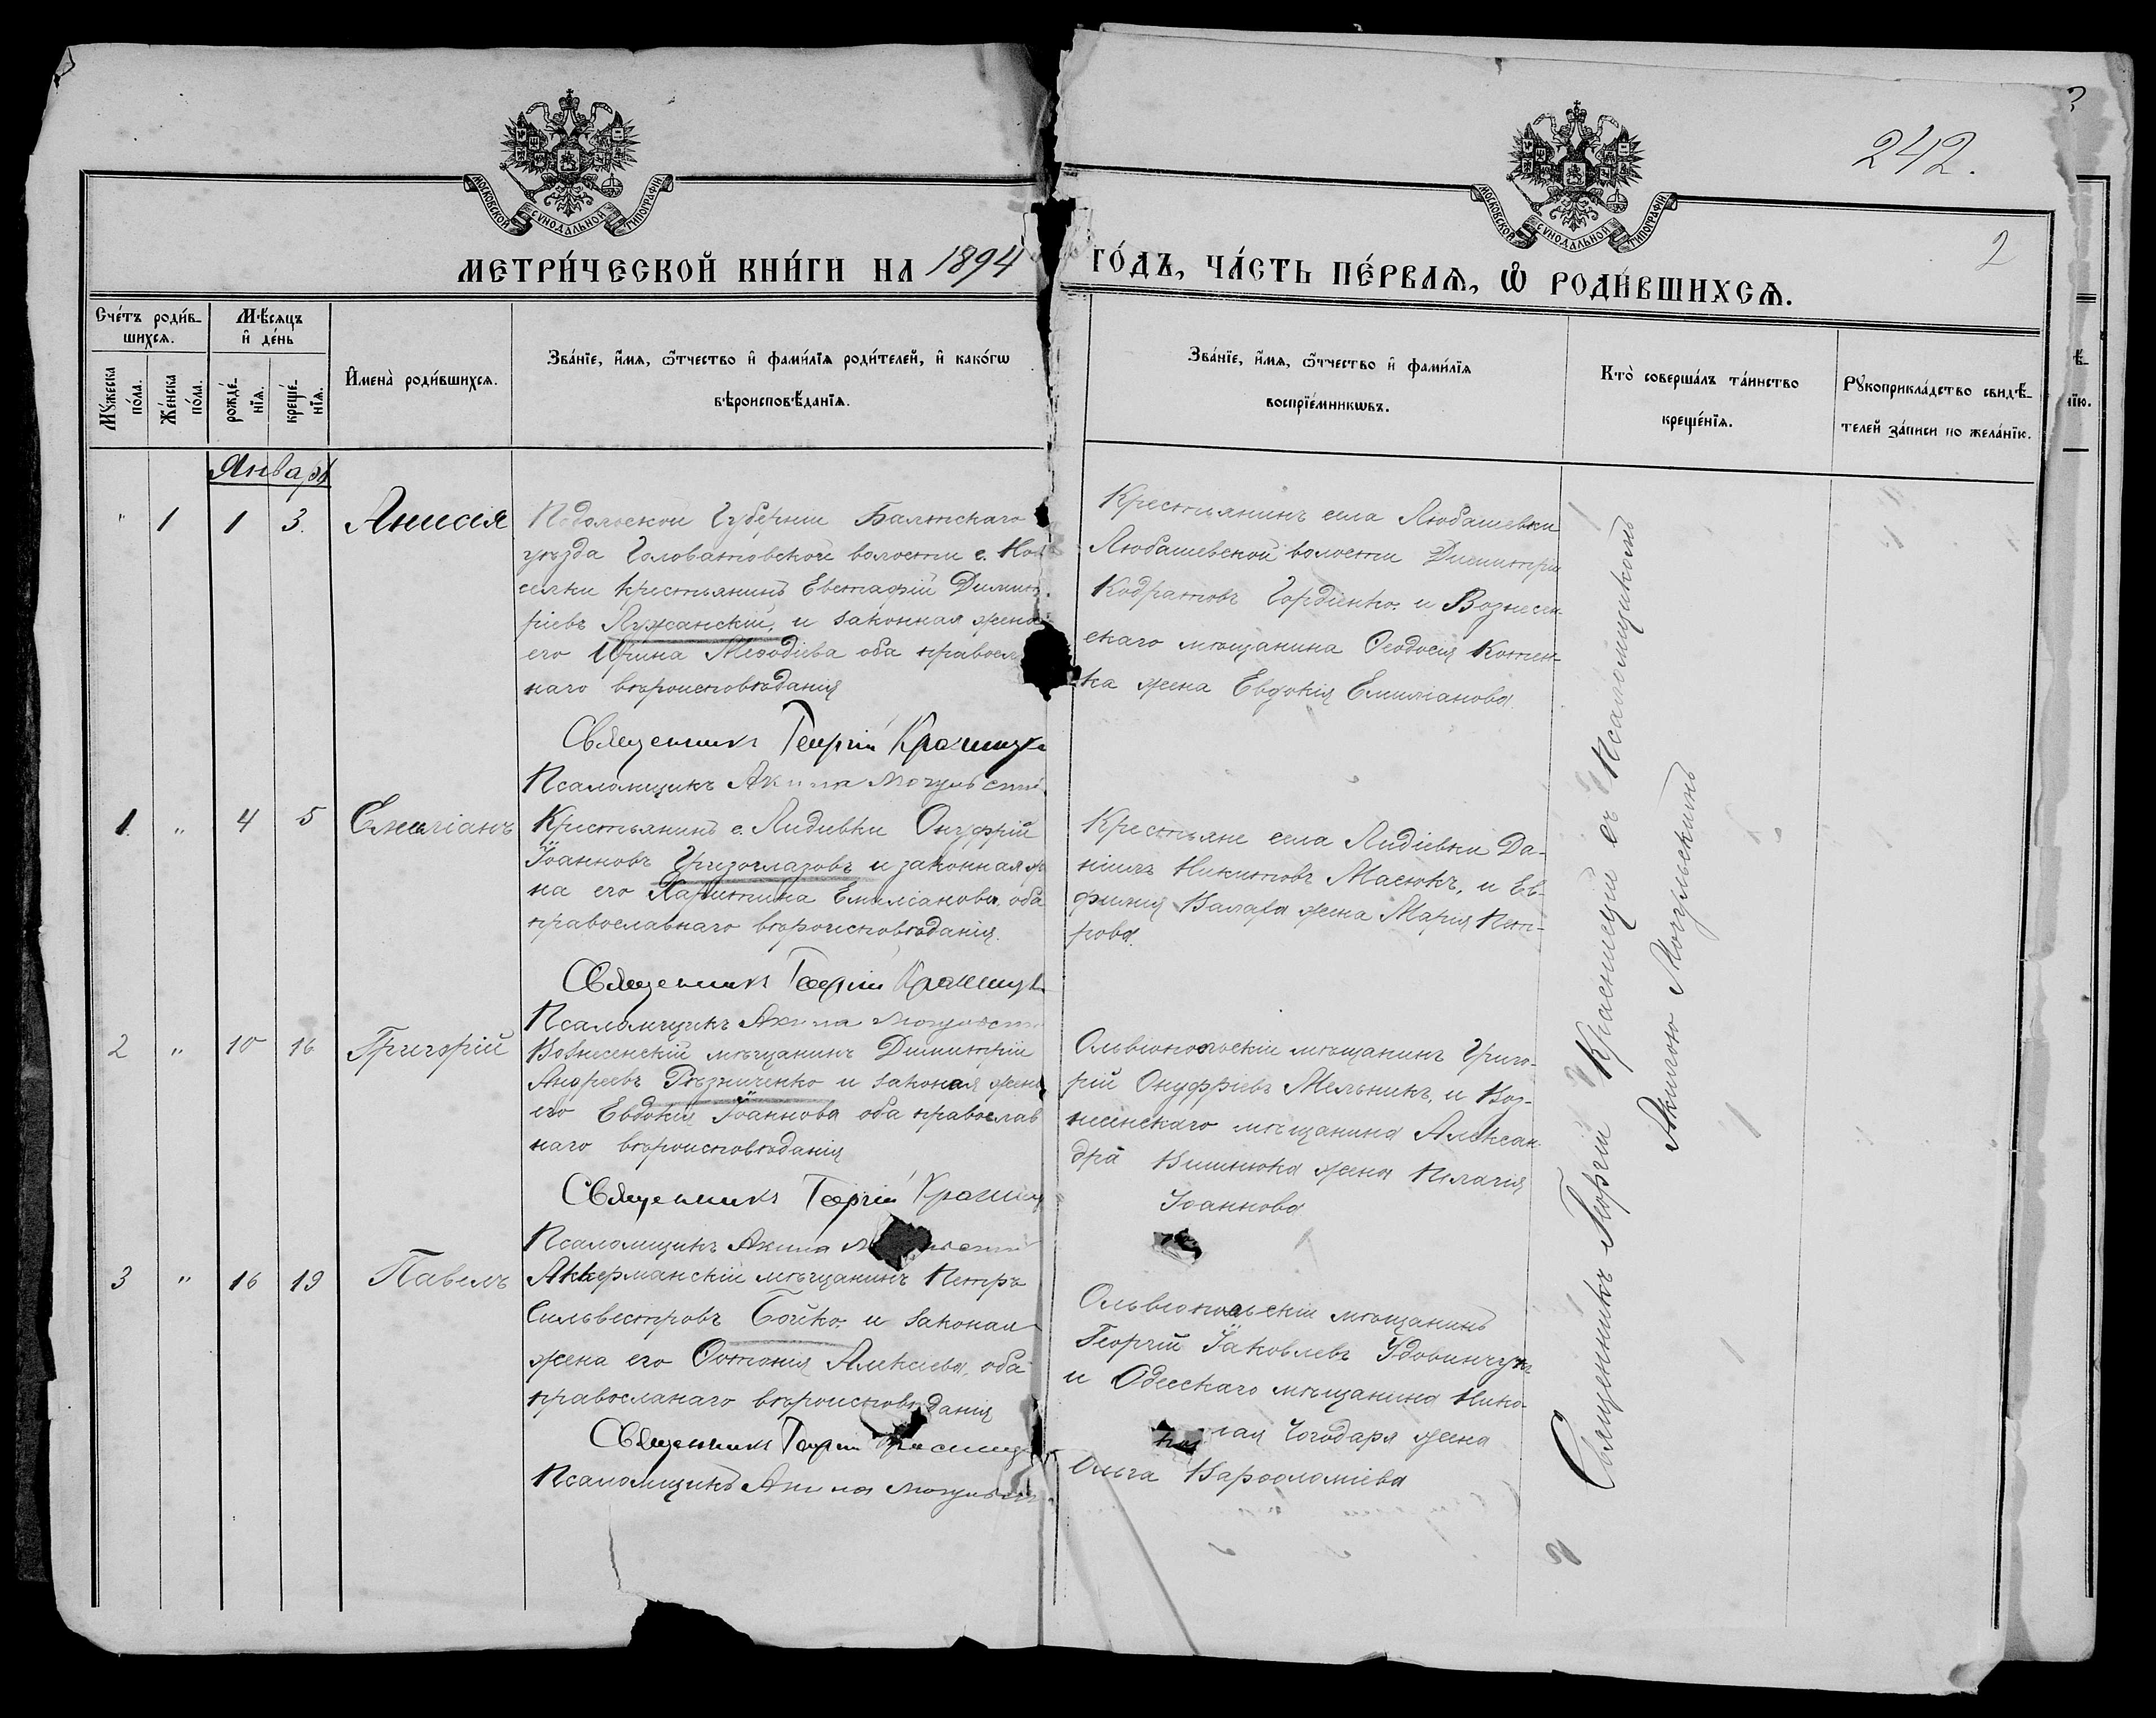 242.
МОСКОВСКОЙ СѴНОДАЛЬНОЙ ТИПОГРАФІИ
МОСКОВСКОЙ СѴНОДАЛЬНОЙ ТИПОГРАФІИ
2
МЕТРИ́ЧЕСКОЙ КНИ́ГИ НА 1894 ГО́ДЪ, ЧА́СТЬ ПЕ́РВАѦ, Ѽ РОДИ́ВШИХСѦ.
Счетъ роди́вшихсѧ.
Мѣсѧцъ и҆ де́нь
Мꙋжеска по́ла.
Же́нска по́ла.
рожде́нїѧ.
креще́нїѧ.
И҆мена̀ роди́вшихсѧ.
Зва́нїе, и҆́мѧ, ѻ҆́тчество и҆ фами́лїѧ роди́телей, и҆ како́гѡ
вѣроисповѣ́данїѧ.
Зва́нїе, и҆́мѧ, ѻ҆́тчество и҆ фами́лїѧ
воспрїе́мникѡвъ.
Кто̀ соверша́лъ та́инство
креще́нїѧ.
Рꙋкоприкла́дство свидѣ́-
телей за́писи по жела́нїю.
Январь
" 1 1 3. Анисія
Подольской Губерніи Балтскаго
уѣзда Головатовской волости с.
селки крестьянинъ Евстафій Димит
ріевъ Лужанскій, и законная жена
его Ирина Меѳодіева оба правосл
наго вѣроисповѣданія
Священникъ Георгій
Псаломщикъ Акила
Крестьянинъ села Любашевки
Любашевской волости Димитрій
Кодратовъ Гордіенко. и Вознесен
скаго мѣщанина Ѳеодосія Котен-
ка жена Евдокія Емиліанова.
1. " 4 5 Емиліанъ
Крестьянинъ с. Лидіевки Онуфрій
Іоанновъ Гризоглазовъ и законная ж
на его Харитина Емиліанова. оба
православнаго вѣроисповѣданія.
Священникъ Георгій
Псаломщикъ Акила
Крестьяне села Лидіевки Да-
ніилъ Никитовъ Масюкъ, и Ев-
фимія жена Марія Пет-
рова.
2 " 10 16 Григорій
Вознесенскій мѣщанинъ Димитрій
Андреевъ Рѣзниченко и законая жена
его Евдокія Іоаннова оба православ
наго вѣроисповѣданія
Священникъ Георгій
Псаломщикъ Акила
Ольвіопольскій мѣщанинъ Григо-
рій Онуфріевъ Мельникъ, и Воз-
несенскаго мѣщанина Александра
Вишнюка жена Пелагія
Іоаннова
3 " 16 19 Павелъ
Аккерманскій мѣщанинъ Петръ
Сильвестровъ Бойко. и законая
жена его Фотинія Алексіева, оба
православнаго вѣроисповѣданія
Священникъ Георгій
Псаломщикъ Акила
Ольвіопольскій мѣщанинъ
Георгій Іаковлевъ Удовинчукъ
и Одесскаго мѣщанина Нико-
лая жена
Ольга Варѳоломіева
Священникъ Георгій Красницкій съ Псаломщикомъ
Акилою Могульскимъ